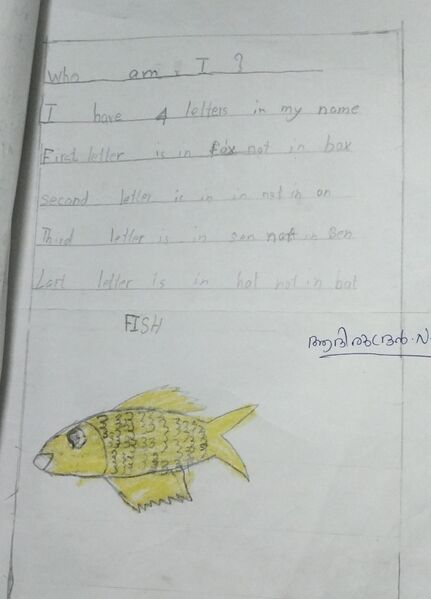 Who am I ?
I have 4 letters in my name
First letter is in fox not in box
second letter is in in not in on
Third letter is in son not in
Last letter is in hot not in bat
FISH